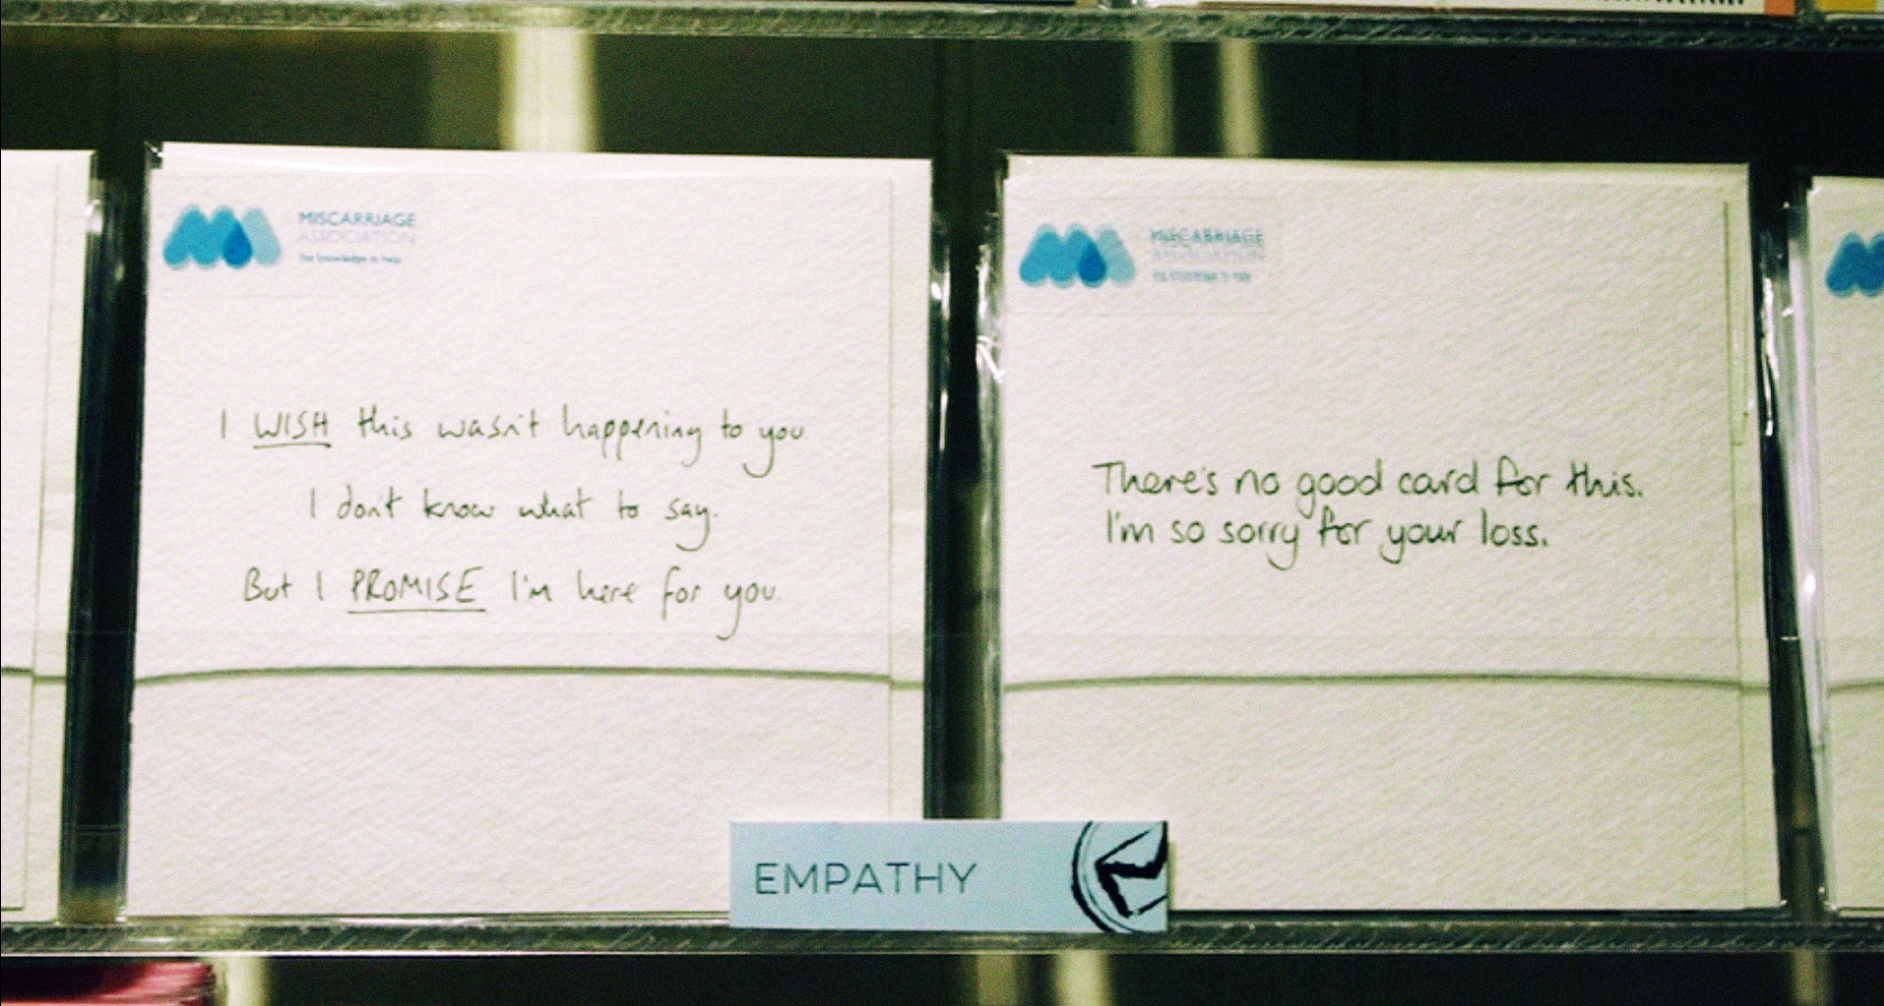 MISCARRIAGE
ASSOCIATION
The knowledge to help
I WISH this wasn't happening to you
I don't know what to say.
But I PROMISE I'm here for you.
MISCARRIAGE
ASSOCIATION
The knowledge to help
There's no good card for this.
I'm so sorry for your loss.
EMPATHY